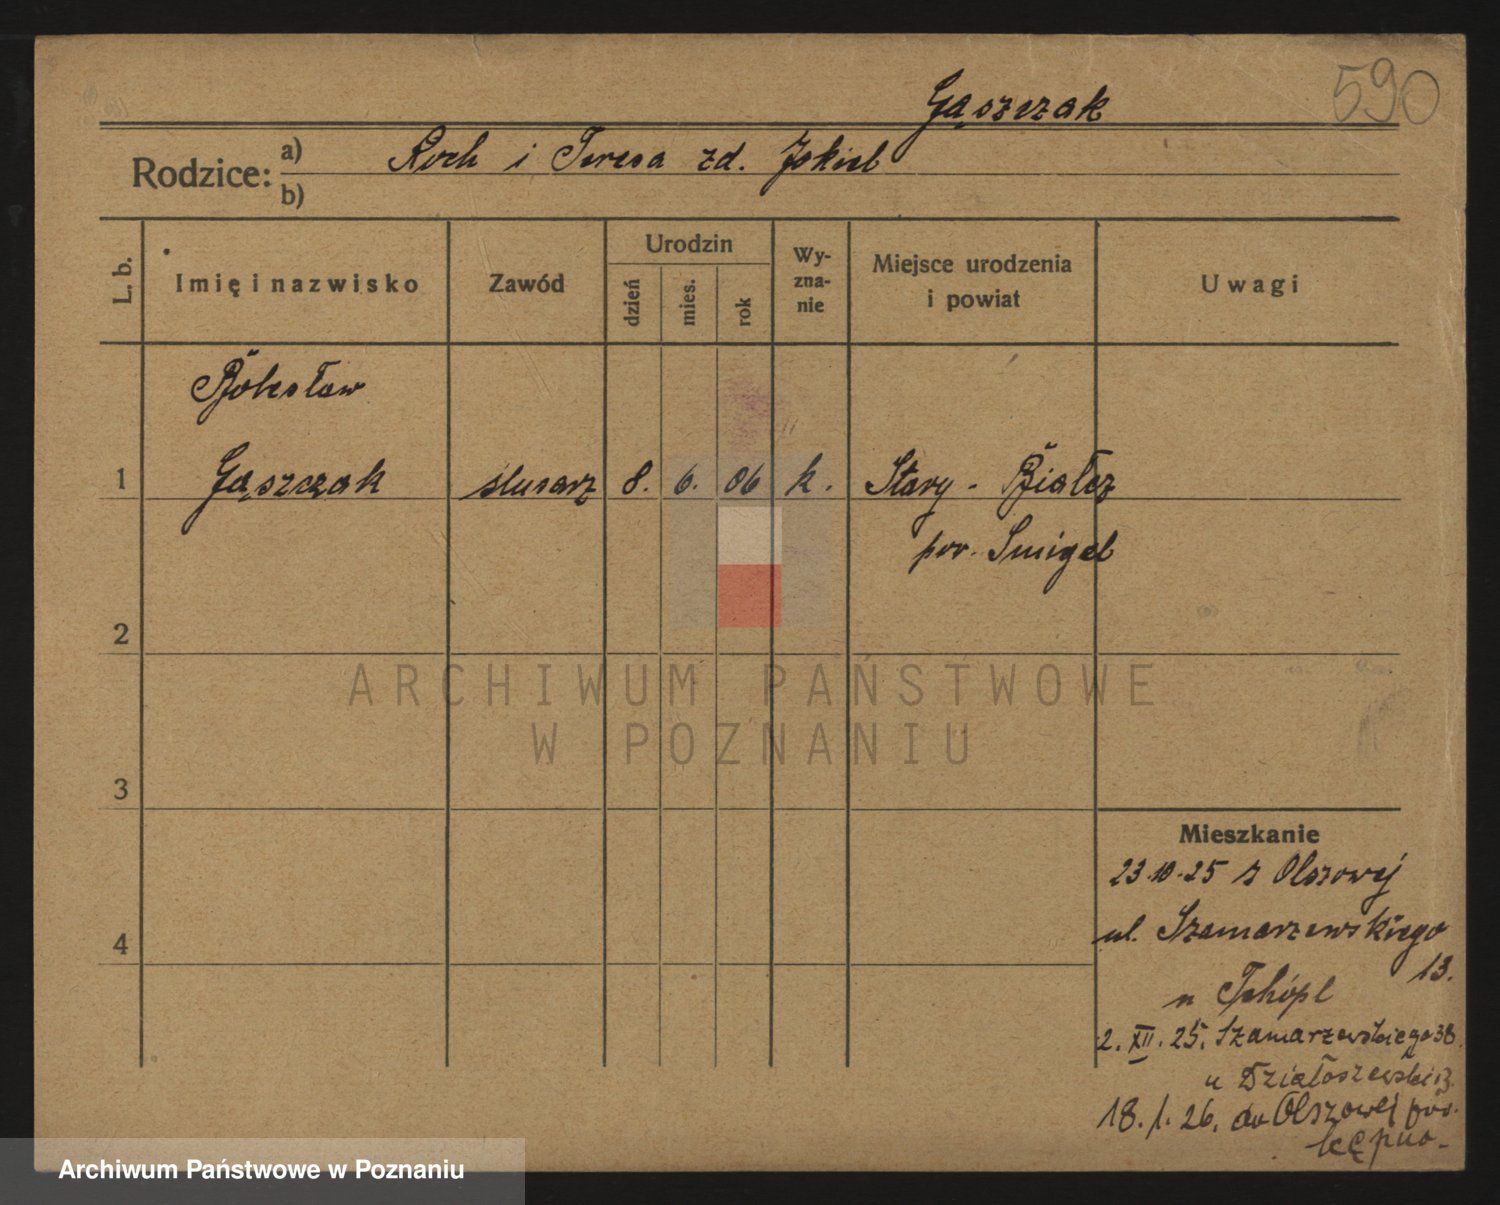 590
Gąszczak
Rodzice: a) Roch i Teresa zd.
b)
L. b. Imię i nazwisko Zawód Urodzin dzień mies. rok Wy-zna-nie Miejsce urodzenia i powiat Uwagi
Bolesław
1 Gąszczak ślusarz 8. 6. 06 k. Stary - Białcz
pow. Smigel
2
ARCHIWUM PAŃSTWOWE
W POZNANIU
3
Mieszkanie
23.10.25 z Olszowej
ul. Szamarzewskiego
13.
4
u
2. XII. 25. Szamarzewskiego 38
u
18. 1. 26. do Olszowej pow.
Kępno
Archiwum Państwowe w Poznaniu